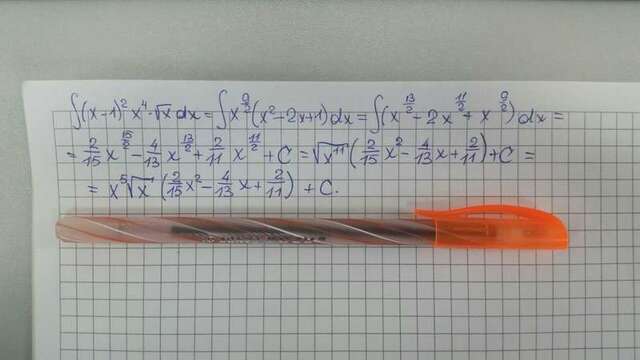 ∫(x-1)² x⁴·√x dx = ∫ x^(9/2) (x²-2x+1) dx = ∫(x^(13/2) - 2x^(11/2) + x^(9/2)) dx =
= 2/15 x^(15/2) - 4/13 x^(13/2) + 2/11 x^(11/2) + C = √x¹¹ (2/15 x² - 4/13 x + 2/11) + C =
= x⁵√x (2/15 x² - 4/13 x + 2/11) + C.